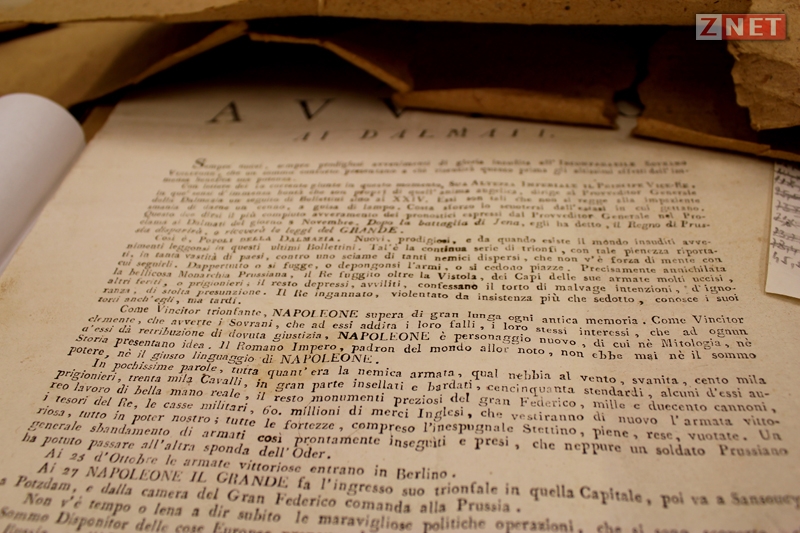 ZNET
AVV
AI DALMATI.
Sempre nuovi, sempre prodigiosi avvenimenti di gloria
Con lettere del 12 corrente giunte in questo momento, SUA ALTEZZA IMPERIALE IL PRINCIPE VICE-RE,
in que' suoi d'immensa bontà che son proprj di quell'anima angelica, dirige al Provveditor Generale
della Dalmazia un seguito di Bollettini sino al XXIV. Essi son tali che non si regge alla impaziente
smania di darne un cenno, a guisa di lampo.
Questo dee dirsi il più compiuto avveramento dei pronostici espressi dal Provveditor Generale nel Pro-
clama ai Dalmati del giorno 2 Novembre. Dopo la battaglia di Jena, egli ha detto, il Regno di Prus-
sia disparirà, o riceverà le leggi del GRANDE.
Così è, POPOLI DELLA DALMAZIA. Nuovi, prodigiosi, e da quando esiste il mondo inauditi avve-
nimenti leggonsi in questi ultimi Bollettini. Tal'è la continua serie di trionfi, con tale pienezza riporta-
ti, in tanta vastità di paesi, contro uno sciame di tanti nemici dispersi, che non v'è forza di mente con
cui seguirli. Dappertutto o si fugge, o depongonsi l'armi, o si cedono piazze. Precisamente annichilata
la bellicosa Monarchia Prussiana, il Re fuggito oltre la Vistola, dei Capi delle sue armate molti uccisi,
altri feriti, o prigionieri; il resto depressi, avviliti, confessano il torto di malvage intenzioni, d'igno-
ranza, di stolta presunzione. Il Re ingannato, violentato da insistenza più che sedotto, conosce i suoi
torti anch'egli, ma tardi.
Come Vincitor trionfante, NAPOLEONE supera di gran lunga ogni antica memoria. Come Vincitor
clemente, che avverte i Sovrani, che ad essi addita i loro falli, i loro stessi interessi, che ad ognun
d'essi dà retribuzione di dovuta giustizia, NAPOLEONE è personaggio nuovo, di cui nè Mitologia, nè
Storia presentano idea. Il Romano Impero, padron del mondo allor noto, non ebbe mai nè il sommo
potere, nè il giusto linguaggio di NAPOLEONE.
In pochissime parole, tutta quant'era la nemica armata, qual nebbia al vento, svanita, cento mila
prigionieri, trenta mila Cavalli, in gran parte insellati e bardati, cencinquanta stendardi, alcuni d'essi au-
reo lavoro di bella mano reale, il resto monumenti preziosi del gran Federico, mille e duecento cannoni,
i tesori del Re, le casse militari, 60. millioni di merci Inglesi, che vestiranno di nuovo l'armata vitto-
riosa, tutto in poter nostro; tutte le fortezze, compreso l'inespugnale Stettino, piene, rese, vuotate. Un
generale sbandamento di armati così prontamente inseguiti e presi, che neppure un soldato Prussiano
ha potuto passare all'altra sponda dell'Oder.
Ai 25 d'Ottobre le armate vittoriose entrano in Berlino.
Ai 27 NAPOLEONE IL GRANDE fa l'ingresso suo trionfale in quella Capitale, poi va a Sansoucy
a Potzdam, e dalla camera del Gran Federico comanda alla Prussia.
Non v'è tempo o lena a dir subito le maravigliose politiche operazioni, che si
Sommo Disponitor delle cose Europee